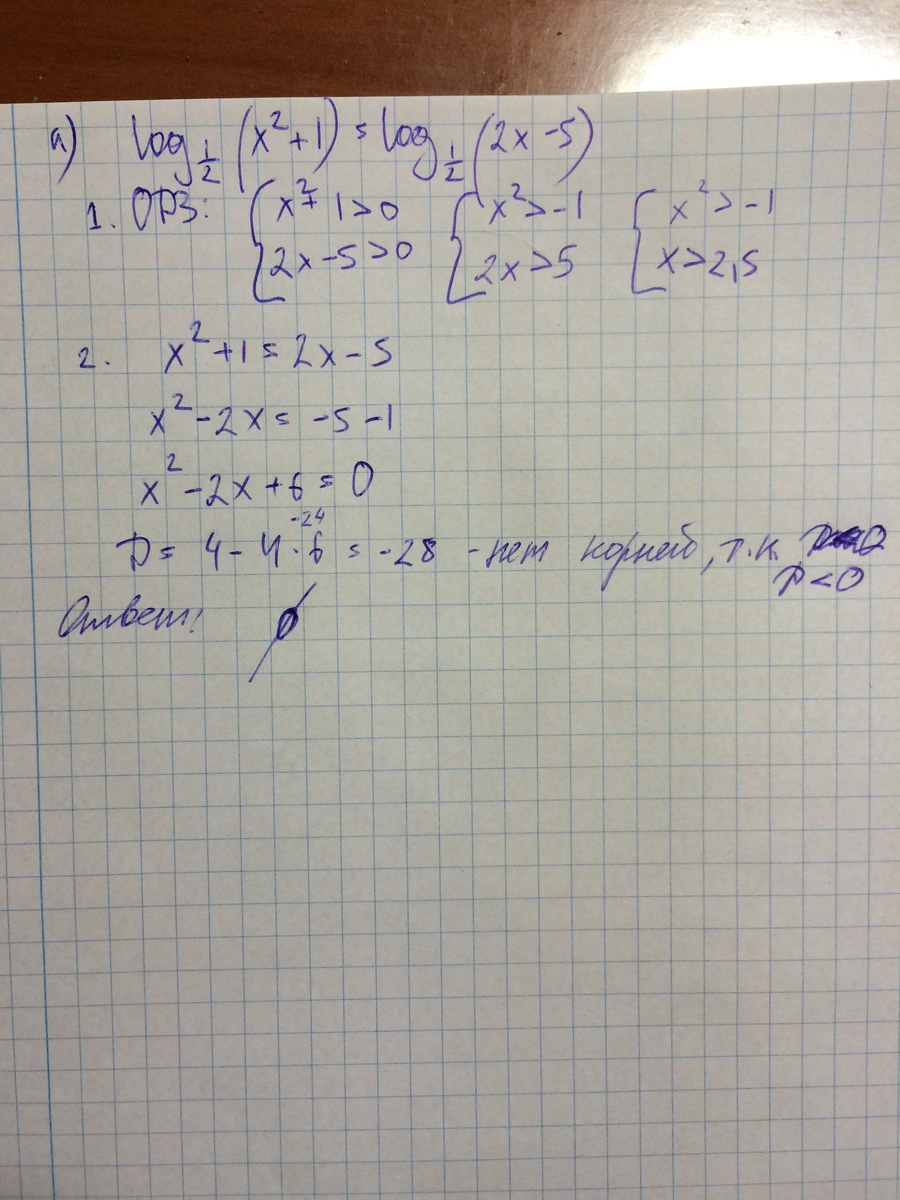 а) log_{1/2} (x² + 1) = log_{1/2} (2x - 5)
1. ОДЗ: { x² + 1 > 0 { x² > -1 { x² > -1
2x - 5 > 0 2x > 5 x > 2,5
2. x² + 1 = 2x - 5
x² - 2x = -5 - 1
x² - 2x + 6 = 0
-24
D = 4 - 4 · 6 = -28 - нет корней, т.к.
D < 0
Ответ: ∅